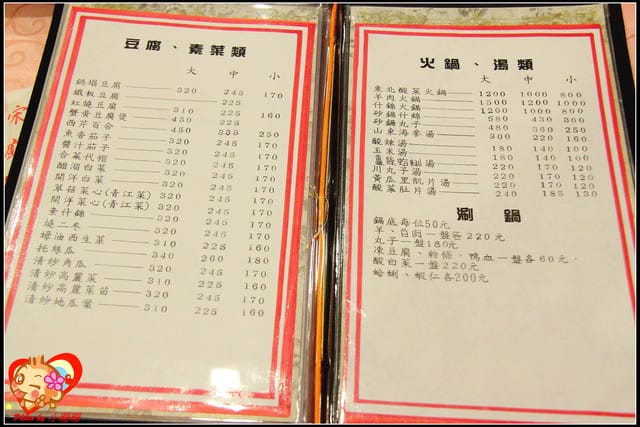 豆腐、素菜類
大 中 小
鍋塌豆腐 320 245 170
鐵板豆腐 225
紅燒豆腐 310 225 160
蟹黃豆腐煲 430 225
西芹百合 450 335 250
魚香茄子 320 245 170
醬汁茄子 320 245 170
合菜代帽 320 245 170
醋溜白菜 320 245 170
開洋白菜 320 245 170
草菇菜心(青江菜) 320 245 170
開洋菜心(青江菜) 320 245 170
素什錦 320 245 170
燒二冬 320 245 170
蠔油西生菜 310 225 160
拌絲瓜 340 260 180
清炒角瓜 320 245 170
清炒高麗菜 310 225 160
清炒高麗菜苗 320 245 170
清炒地瓜葉 310 225 160
火鍋、湯類
大 中 小
東北酸菜火鍋 1200 1000 800
羊肉火鍋 1500 1200 1000
什錦火鍋 1200 1000 800
砂鍋什錦 580 430 300
砂鍋丸子 480 360 250
山東海參湯 300 220 160
酸辣湯 180 140 100
玉米湯 180 140 100
湯 220 170 120
川丸子湯 220 170 120
黃瓜里肌片湯 220 170 120
酸菜肚片湯 240 185 130
涮鍋
鍋底每位50元
羊、白肉一盤各220元
丸子一盤180元
凍豆腐、粉條、鴨血一盤各60元,
酸白菜一盤220元
蛤蜊、蝦仁各200元